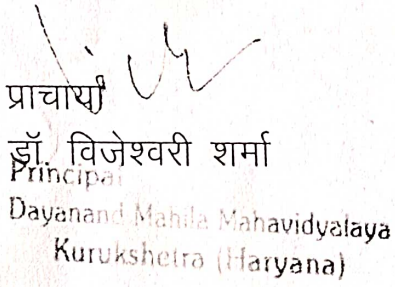 प्राचार्या
डॉ. विजेश्वरी शर्मा
Principal
Dayanand Mahila Mahavidyalaya
Kurukshetra (Haryana)